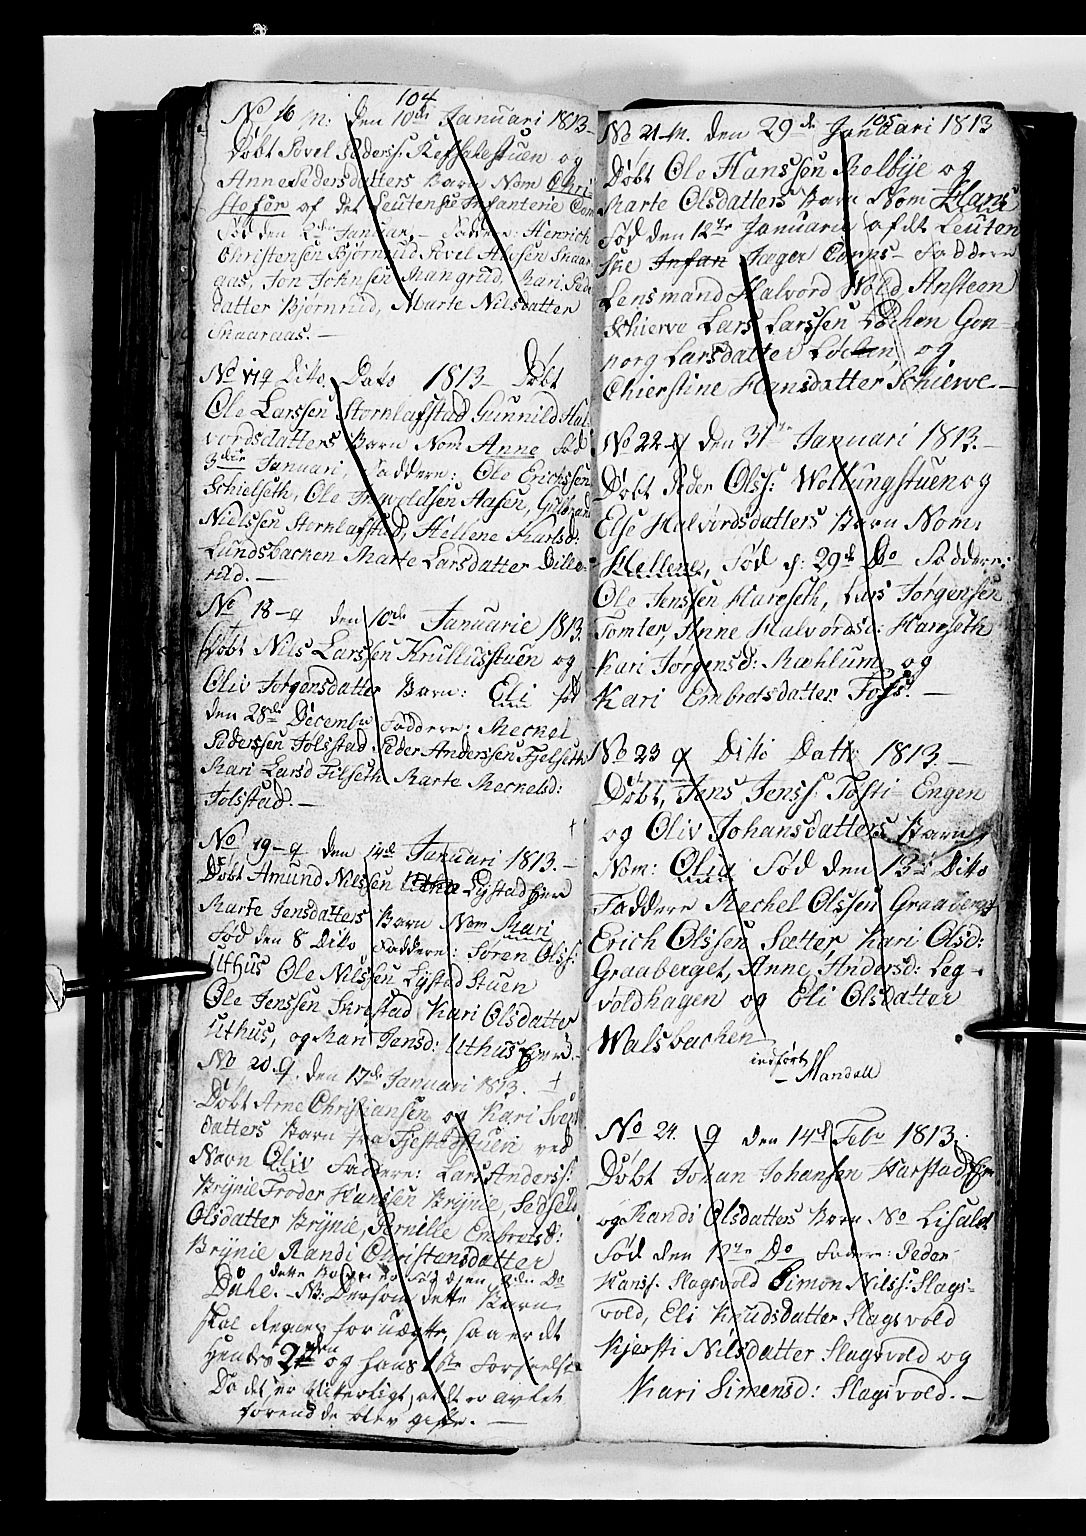 104
No 16 M: den 10de Januari 1813
Døbt Povel Pederss: Refsetestuen og
Anne Pedersdatters Barn Nom Chri
stofer af det Leutenske Infanterie Com
Fød den 2den Januar, – Faddere: Henrich
Christensen Bjørnrud Povel Olsen Snaar
aas, Jon Johnsen Mangrud, Mari Peder
datter Bjørnrud, Marte Nilsdatter
Snaaraas. –
No 17 q Dito Dato 1813 Døbt
Ole Larssen Stornlafstad Gunnild Hal
vordsdatters Barn Nom Anne fød
3die Januari, Faddere: Ole Erichssen
Schielseth, Ole Ingvoldsen Aasen, Gulbrand
Nielssen Stornlafstad, Hellene Karlsd:
Lundsbachen Marte Larsdatter Dille-
rud. –
No 18 – q den 10de Januarie 1813.
Døbt Nils Larssen Krullusstuen og
Oliv Jørgensdatter Barn: Eli fød
den 28de December Faddere: Mechel
Pederssen Jolstad Peder Anderssen Fjelseth
Mari Larsd Filseth Marte Mechelsd:
Jolstad. –
No 19 – q den 14de Januari 1813. –
Døbt Amund Nilssen Lystad Eier
Marte Jensdatters Barn Nom Mari
Fød den 8 Dito Faddere: Søren Olss:
Uthus Ole Nilssen Lystad Stuen
Ole Jenssen Skrestad Kari Olsdatter
Uthus, og Mari Jensd: Uthus Eierd. –
No 20. q. den 17de Januari 1813.
Døbt Arne Christiansen og Kari Svend
datters Barn fra Fjestadstuen ved
Navn Oliv Faddere: Lars Anderss:
Brynie Troder Hanssen Brynie, Sedsel
Olsdatter Brynie, Pernille Embretsd:
Brynie Randi Christensdatter
dette Barn er fød den Do
Dahl. – NB: Dersom dette Barn
skal regnes for uægte, saa er det
hendes 2den og hans 1ste Forseelse
Da det er Uiterligt, at de er
giftte. –
105
No 21 – M. den 29de Januari 1813
Døbt Ole Hanssen Melbye og
Marte Olsdatters Barn Nom Hans
Fød den 12te Januarii af dt Leuten
ske Infan Jæger Corps – Faddere
Lensmand Halvord Wold Ansteen
Schierve Lars Larssen Løchen Gon-
norg Larsdatter Løchen, og
Chierstine Hansdatter Schierve. –
No 22 – q den 31te Januari 1813. –
Døbt Peder Olss: Wollungstuen og
Else Halvordsdatters Barn Nom
Hellene, Fød d: 29de Do Faddere:
Ole Jenssen Hareseth, Lars Jørgensen
Tomter, Anne Halvordsd: Hareseth
Kari Jørgensd: Mæhlum og
Kari Embretsdatter Foss. –
No 23 q Dito Datto 1813. –
Døbt, Jens Jenss: Tosti-Engen
og Oliv Johansdatters Barn
Nom: Olia Fød den 13de Dito
Faddere Mechel Olssen Graaberget
Erich Olssen Sætter Kari Olsd:
Graaberget, Anne Andersd: Leg-
voldhagen og Eli Olsdatter
Walsbachen
indført
– Mandall
No 24. q den 14de Febr 1813.
Døbt Johan Johansen Harstad Eier
og Randi Olsdatters Barn No Lisabet
Fød den 12te Do Fadere: Peder
Hanss: Slagsvold Simon Nilss: Slags-
vold, Eli Knudsdatter Slagsvold
Kjersti Nilsdatter Slagsvold og
Kari Simensd: Slagsvold. –